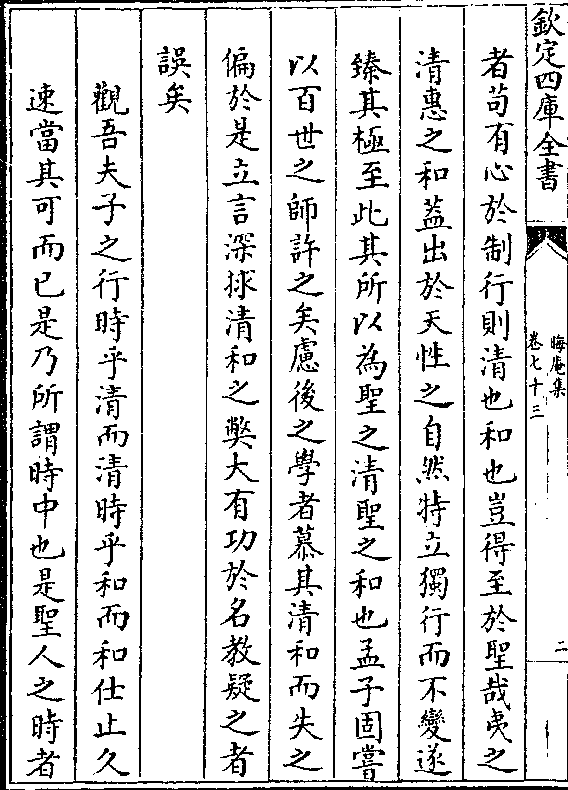 欽定四庫全書
晦庵集
卷七十三
二
者苟有心於制行則清也和也豈得至於聖哉夷之
清惠之和葢出於天性之自然特立獨行而不變遂
臻其極至此其所以為聖之清聖之和也孟子固嘗
以百世之師許之矣慮後之學者慕其清和而失之
偏於是立言深捄清和之弊大有功於名教疑之者
誤矣
觀吾夫子之行時乎清而清時乎和而和仕止久
速當其可而已是乃所謂時中也是聖人之時者